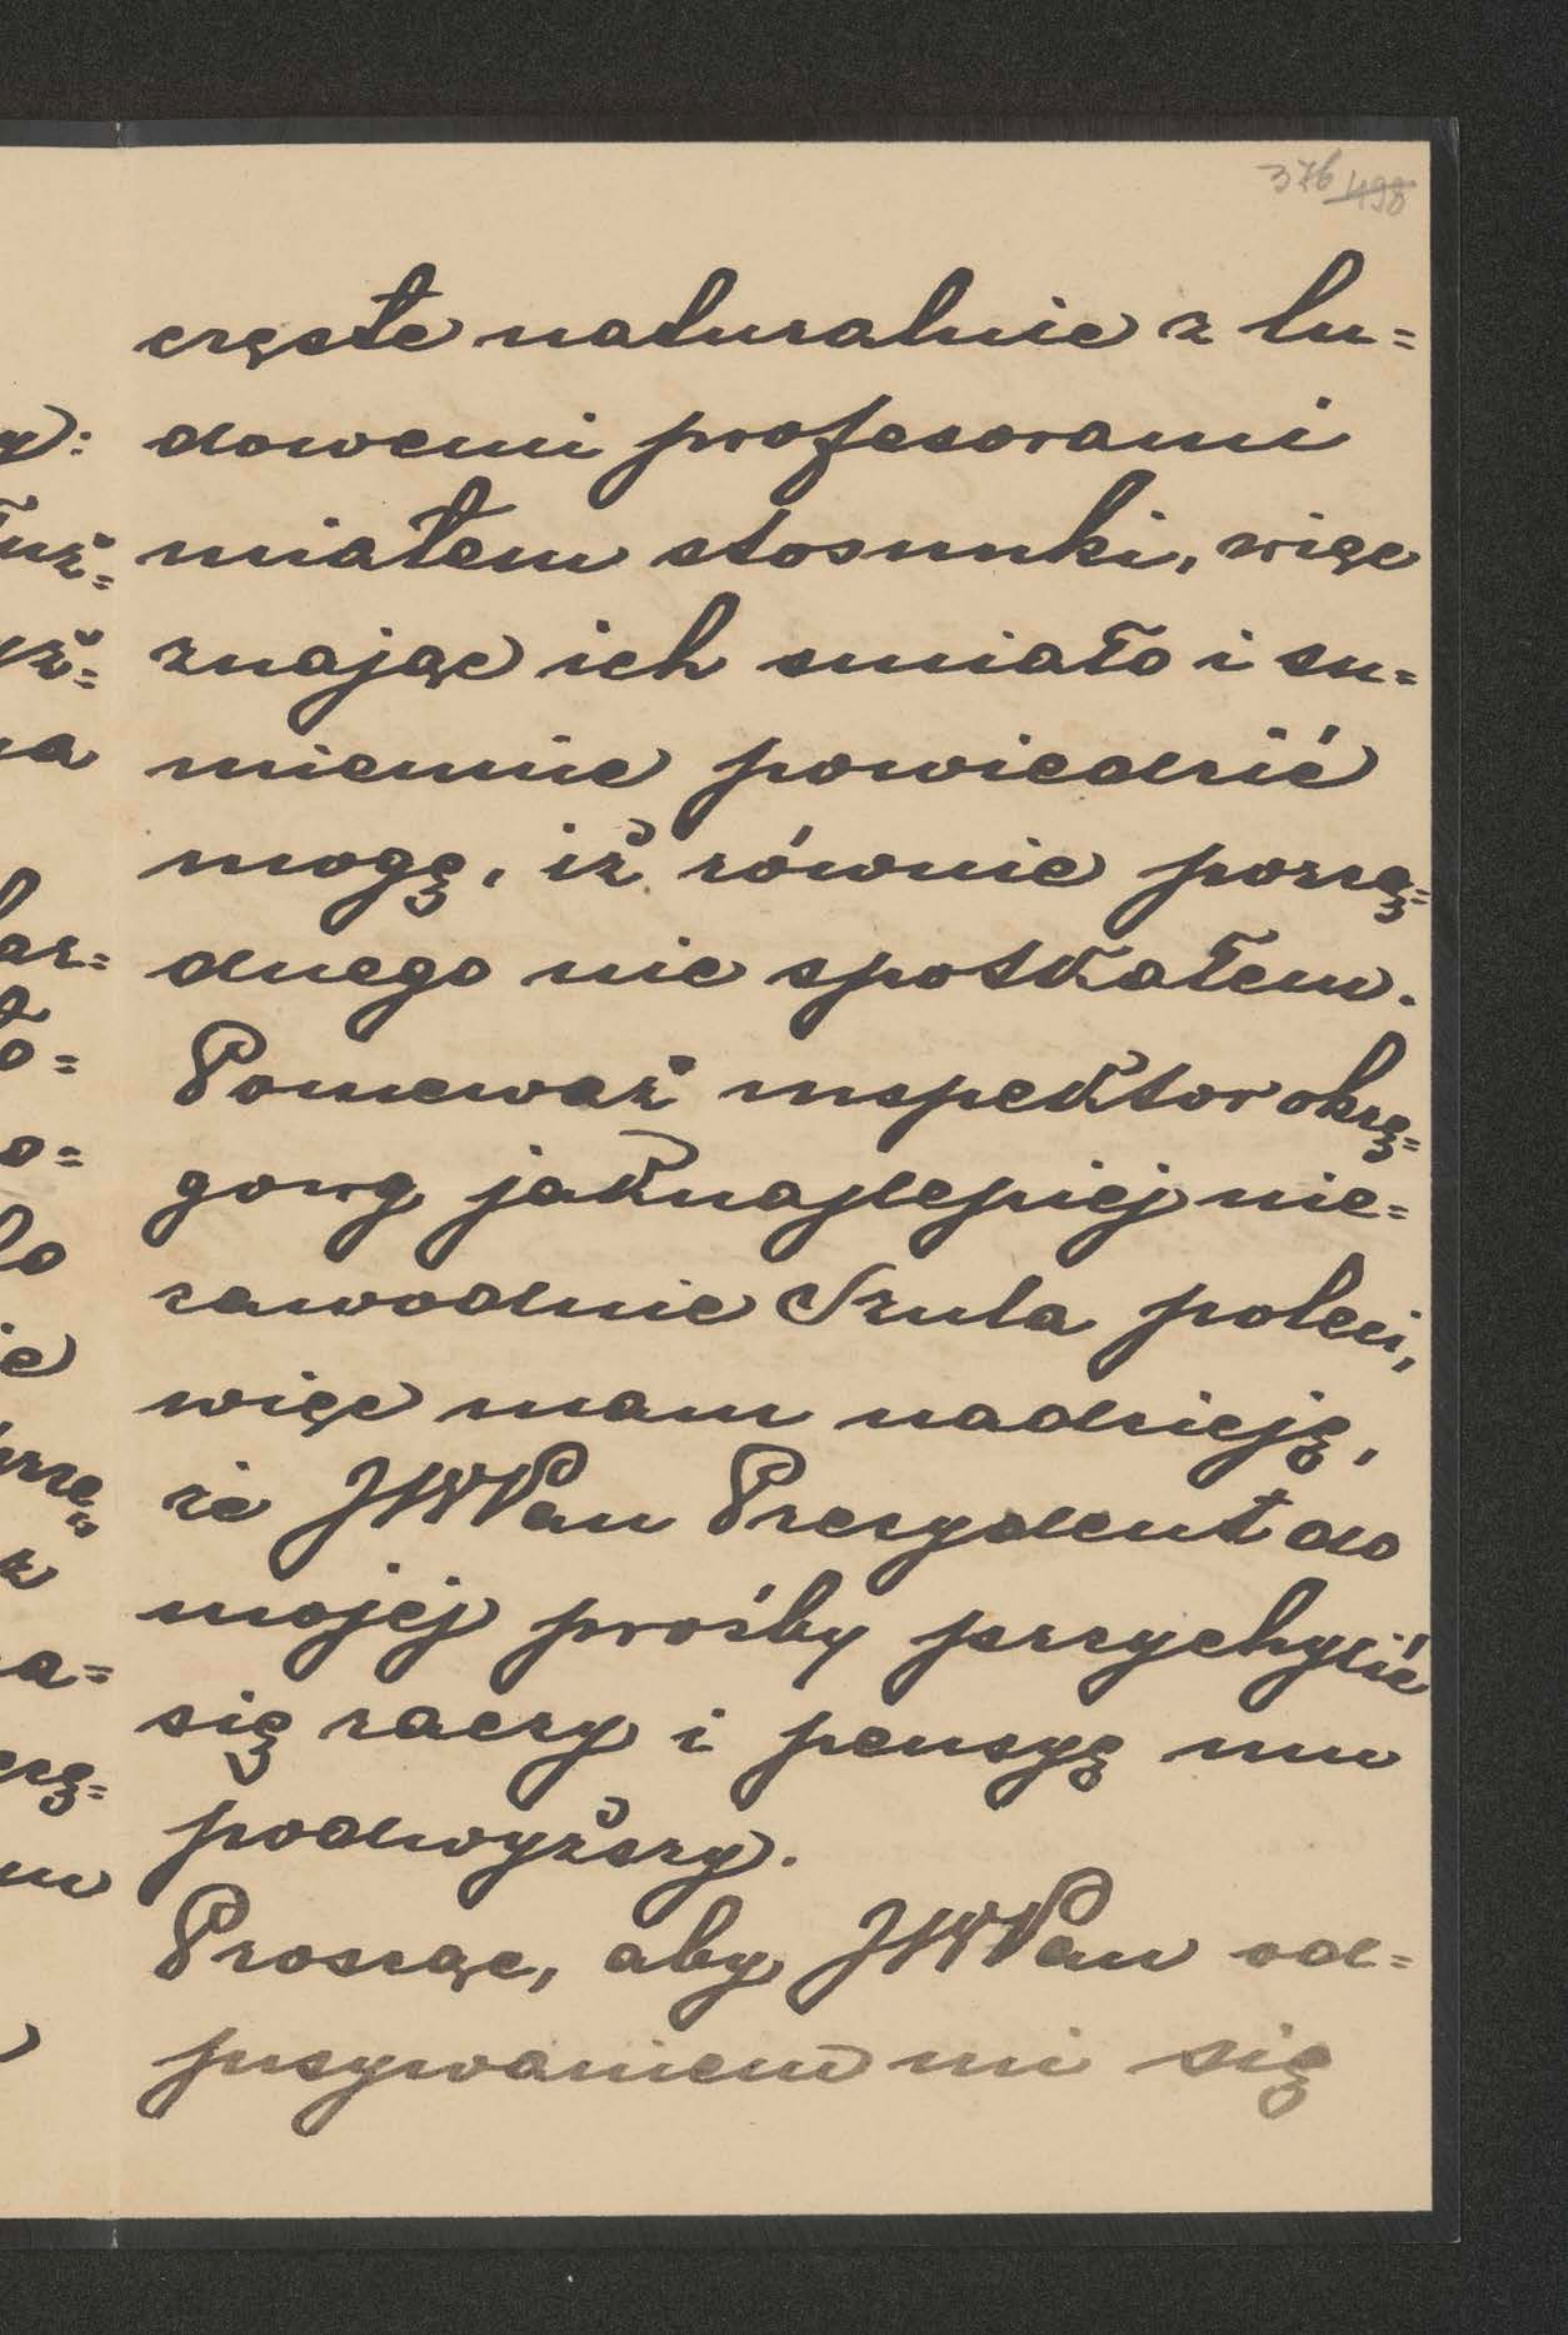 376 498
częste naturalnie z lu=
dowemi profesorami
miałem stosunki, więc
znając ich smiało i su=
miennie powiedzić
mogę, iż równie porzą=
dnego nie spotkałem.
Ponieważ inspektor okrę=
gowy jaknajlepiej nie=
zawodnie Szula poleci,
więc mam nadzieję,
że JWPan Prezydent do
mojej prośby przychylić
się raczy i pensyę mu
podwyższy.
Prosząc, aby JWPan od=
pisywaniem mi się